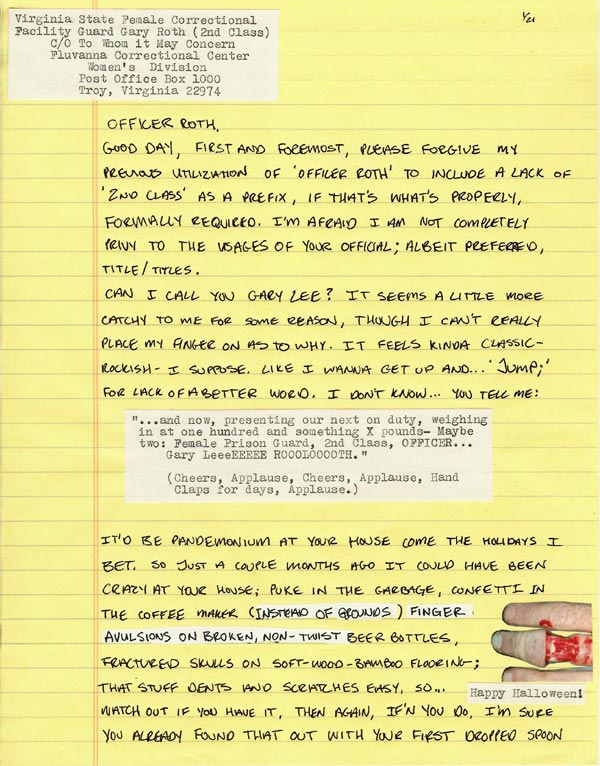 1/21
Virginia State Female Correctional
Facility Guard Gary Roth (2nd Class)
C/O To Whom it May Concern
Fluvanna Correctional Center
Women's Division
Post Office Box 1000
Troy, Virginia 22974
OFFICER ROTH,
GOOD DAY, FIRST AND FOREMOST, PLEASE FORGIVE MY
PREVIOUS UTILIZATION OF 'OFFICER ROTH' TO INCLUDE A LACK OF
'2ND CLASS' AS A PREFIX, IF THAT'S WHAT'S PROPERLY,
FORMALLY REQUIRED. I'M AFRAID I AM NOT COMPLETELY
PRIVY TO THE USAGES OF YOUR OFFICIAL; ALBEIT PREFERRED,
TITLE/TITLES.
CAN I CALL YOU GARY LEE? IT SEEMS A LITTLE MORE
CATCHY TO ME FOR SOME REASON, THOUGH I CAN'T REALLY
PLACE MY FINGER ON AS TO WHY. IT FEELS KINDA CLASSIC-
ROCKISH- I SUPPOSE. LIKE I WANNA GET UP AND...'JUMP;'
FOR LACK OF A BETTER WORD. I DON'T KNOW... YOU TELL ME:
"...and now, presenting our next on duty, weighing
in at one hundred and something X pounds- Maybe
two: Female Prison Guard, 2nd Class, OFFICER...
Gary LeeeEEEEE ROOOLOOOOTH."
(Cheers, Applause, Cheers, Applause, Hand
Claps for days, Applause.)
IT'D BE PANDEMONIUM AT YOUR HOUSE COME THE HOLIDAYS I
BET. SO JUST A COUPLE MONTHS AGO IT COULD HAVE BEEN
CRAZY AT YOUR HOUSE; PUKE IN THE GARBAGE, CONFETTI IN
THE COFFEE MAKER (INSTEAD OF GROUNDS) FINGER
AVULSIONS ON BROKEN, NON-TWIST BEER BOTTLES,
FRACTURED SKULLS ON SOFT-WOOD-BAMBOO FLOORING-;
THAT STUFF DENTS AND SCRATCHES EASY, SO...
Happy Halloween!
WATCH OUT IF YOU HAVE IT, THEN AGAIN, IF'N YOU DO, I'M SURE
YOU ALREADY FOUND THAT OUT WITH YOUR FIRST DROPPED SPOON